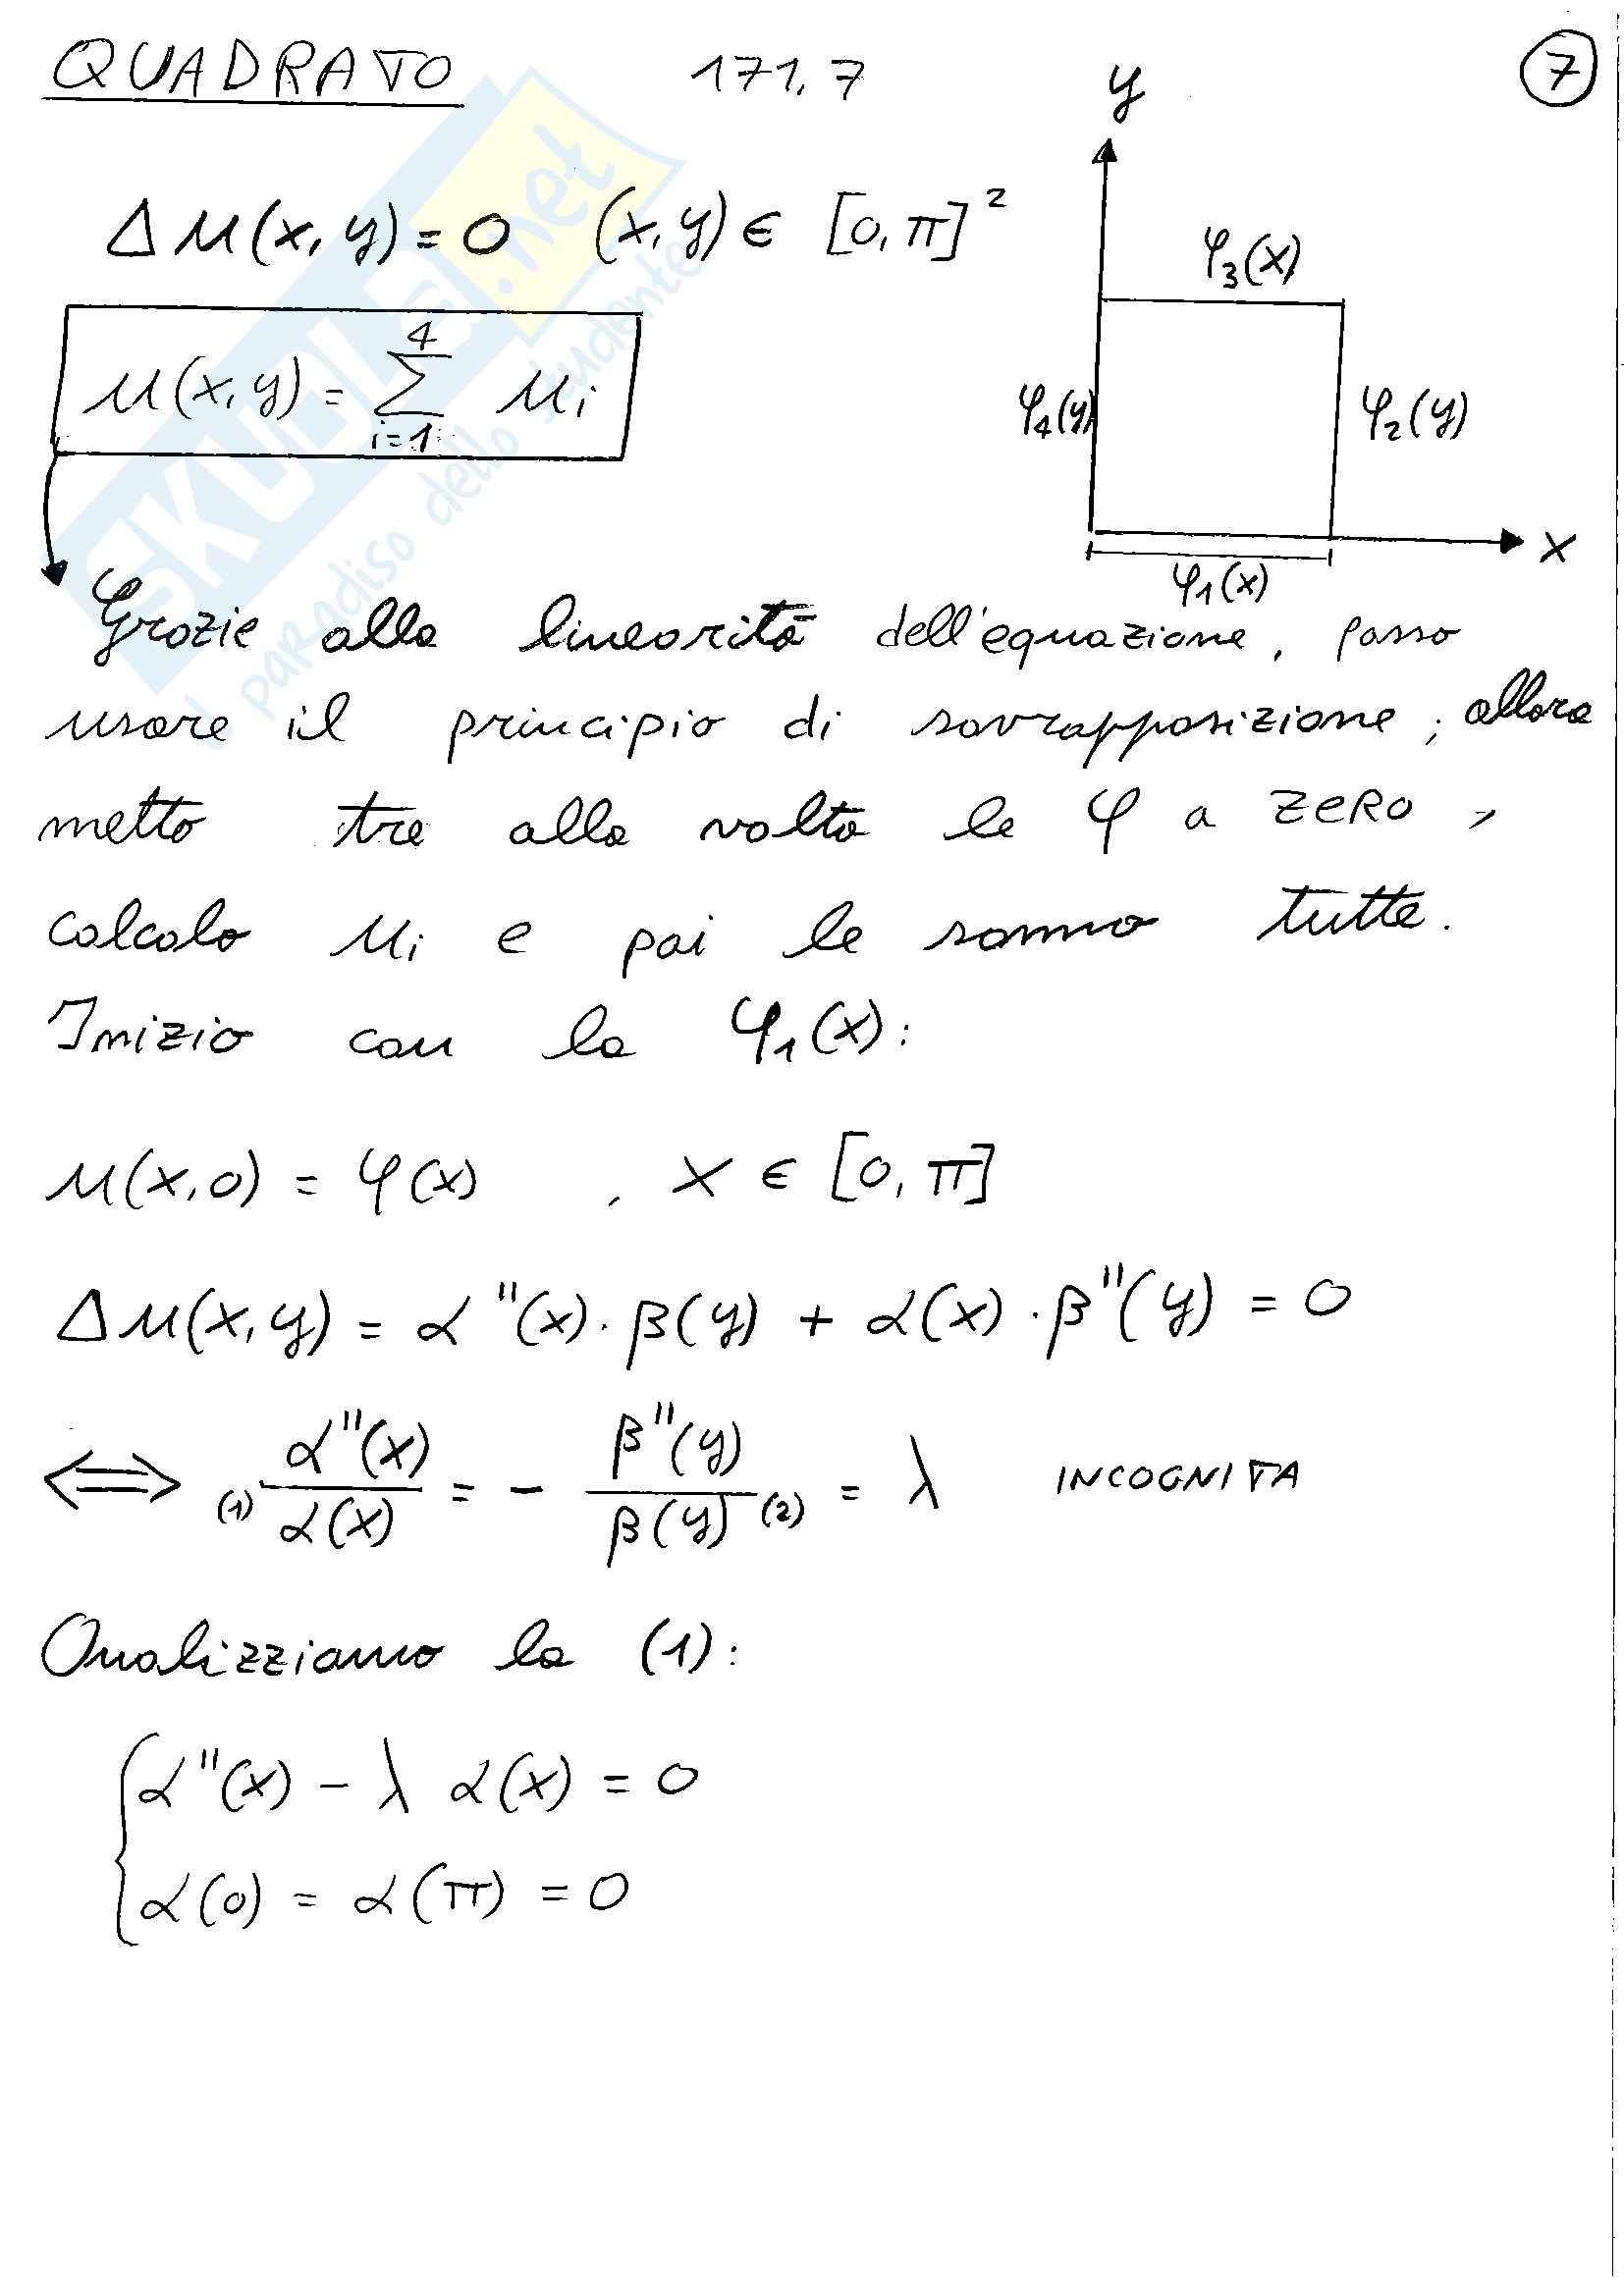 QUADRATO 171.7 7
Δu(x,y)=0 (x,y)∈ [0,π]²
u(x,y) = Σ_{i=1}^{4} u_i
y
φ₃(x)
φ₄(y) φ₂(y)
x
φ₁(x)
Grazie alla linearità dell'equazione, posso
usare il principio di sovrapposizione; allora
metto tre alla volta le φ a zero,
calcolo u_i e poi le sommo tutte.
Inizio con la φ₁(x):
u(x,0) = φ(x) , x ∈ [0,π]
Δu(x,y) = α''(x)·β(y) + α(x)·β''(y) = 0
⟺ (1) α''(x)/α(x) = - β''(y)/β(y) (2) = λ INCOGNITA
Analizziamo la (1):
α''(x) - λ α(x) = 0
α(0) = α(π) = 0
SKUOLA.net
il paradiso dello studente